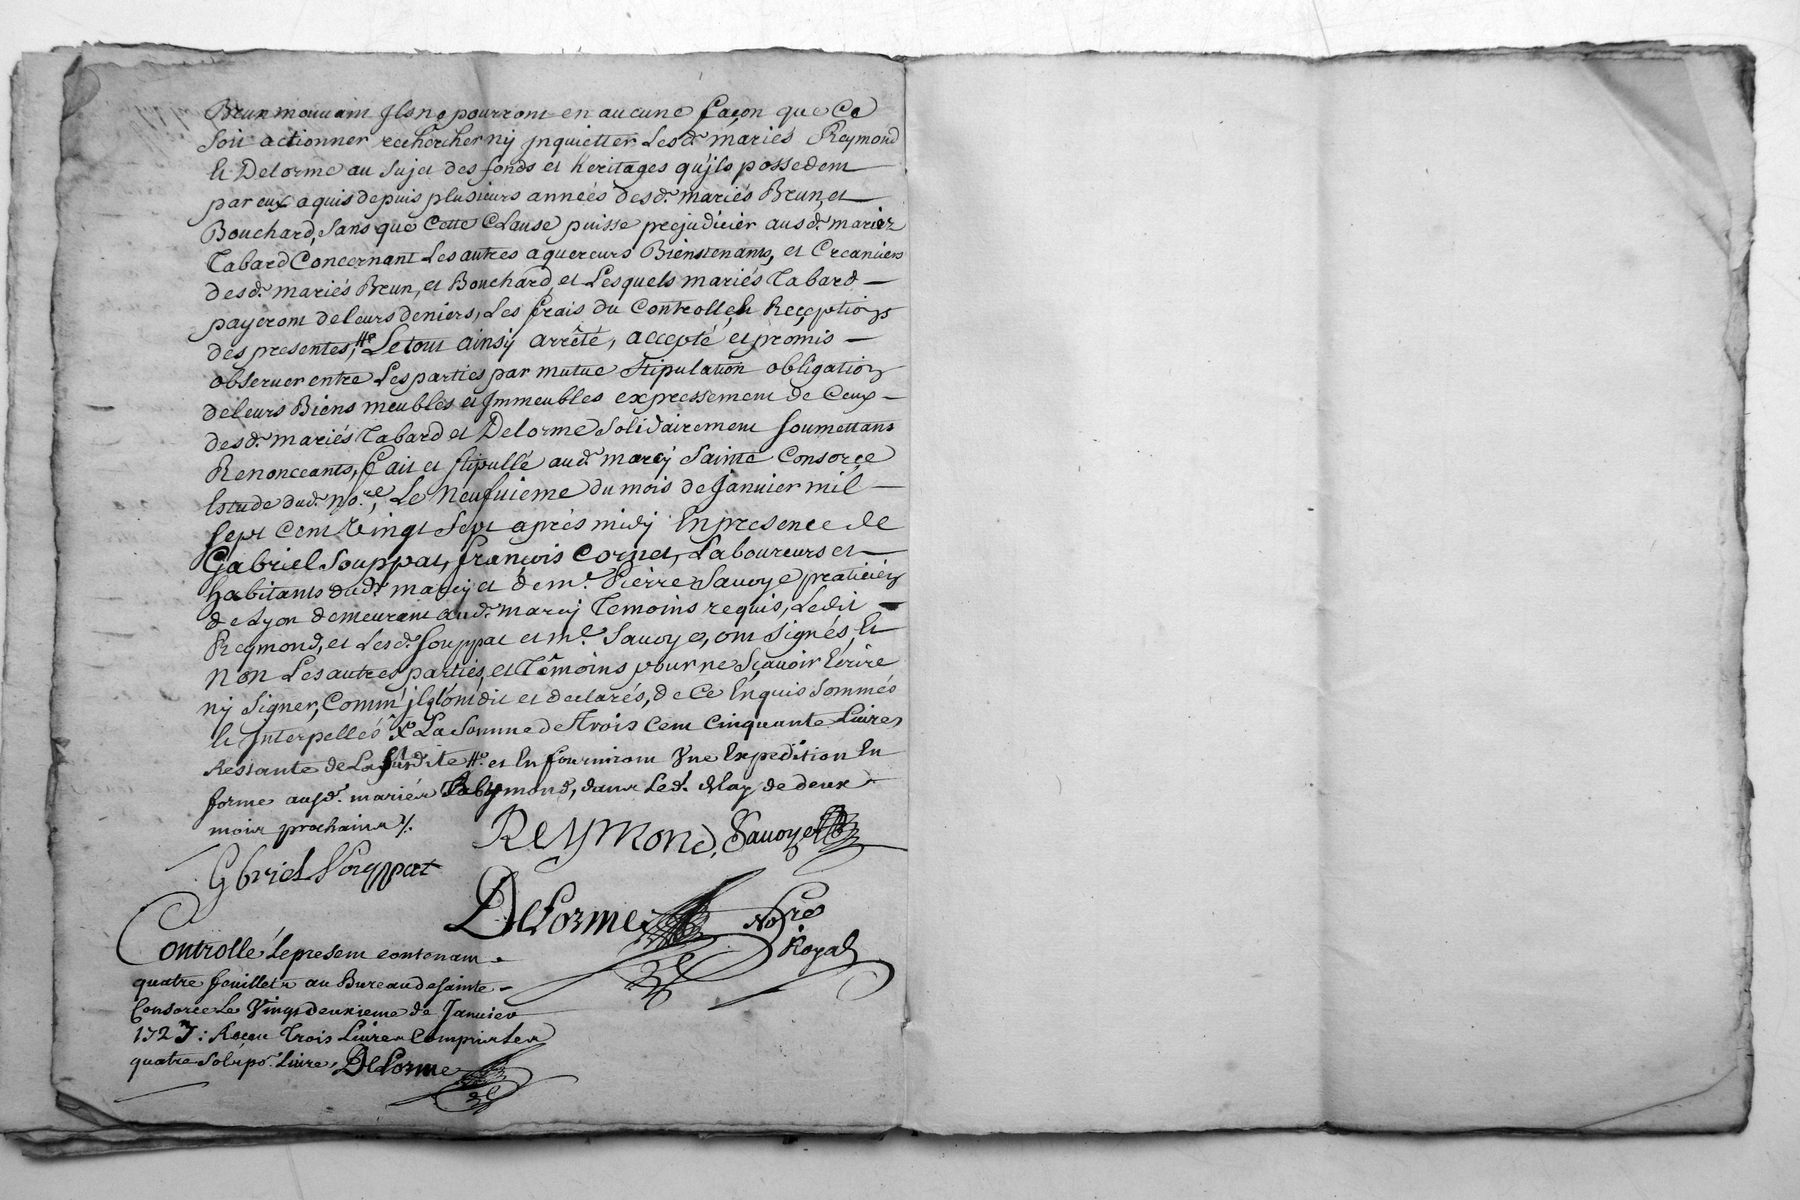 Brun mouuant Jls ne pourront en aucune façon que Ce
Soit actionner rechercher ny Jnquietter Lesd. mariés Reymond
et Delorme au Sujet des fonds et heritages qu'jls possedent
par eux aquis depuis plusieurs années desd. mariés Brun, et
Bouchard, Sans que Cette Clause puisse prejudicier ausd. mariéz
Tabard Concernant Les autres aquereurs Bienstenants, et Creanciers
desd. mariés Brun, et Bouchard, et Lesquels mariés Tabard
payeront de leurs deniers, Les frais du Controlle, et Receptions
des presentes, # Le tout ainsy arrêté, accepté et promis
observer entre Les parties par mutue Stipulation obligation
de leurs Biens meubles et Jmmeubles expressement de Ceux
desd. mariés Tabard et Delorme Solidairement Soumettans
Renonceants, fait et stipullé aud. marcy Sainte Consorce
Estude dud. no.re, Le Neufuieme du mois de Januier mil
Sept Cent Vingt Sept aprés midy En presence de
Gabriel Souppat, françois Cornet, Laboureurs et
habitants dud. marcy et de m.e Pierre Sauoye praticien
de Lyon demeurant aud. marcy Temoins requis, Ledit
Reymond, et Lesd. Souppat et m.e Sauoye, ont Signés, Et
Non Les autres parties, et Témoins pour ne Sçauoir Ecrire
ny Signer, Comm' jls ont dit et declarés, de Ce Enquis Sommés
Et Jnterpellés X La Somme de trois Cent Cinquante Liures
Restante de La susdite # et En fourniront Vne Expedition En
forme ausd. mariés Reymond, dans Led. delay de deux
mois prochains ./.
Reymond, Sauoye
Gbriel Souppat
DeLorme No.re Royal
Controllé Le present contenant
quatre feuillets au Bureau de sainte
Consorce Le Vingt deuxieme de Januier
1727: Receu Trois Liures Compris Les
quatre Sols po.r Liure, DeLorme